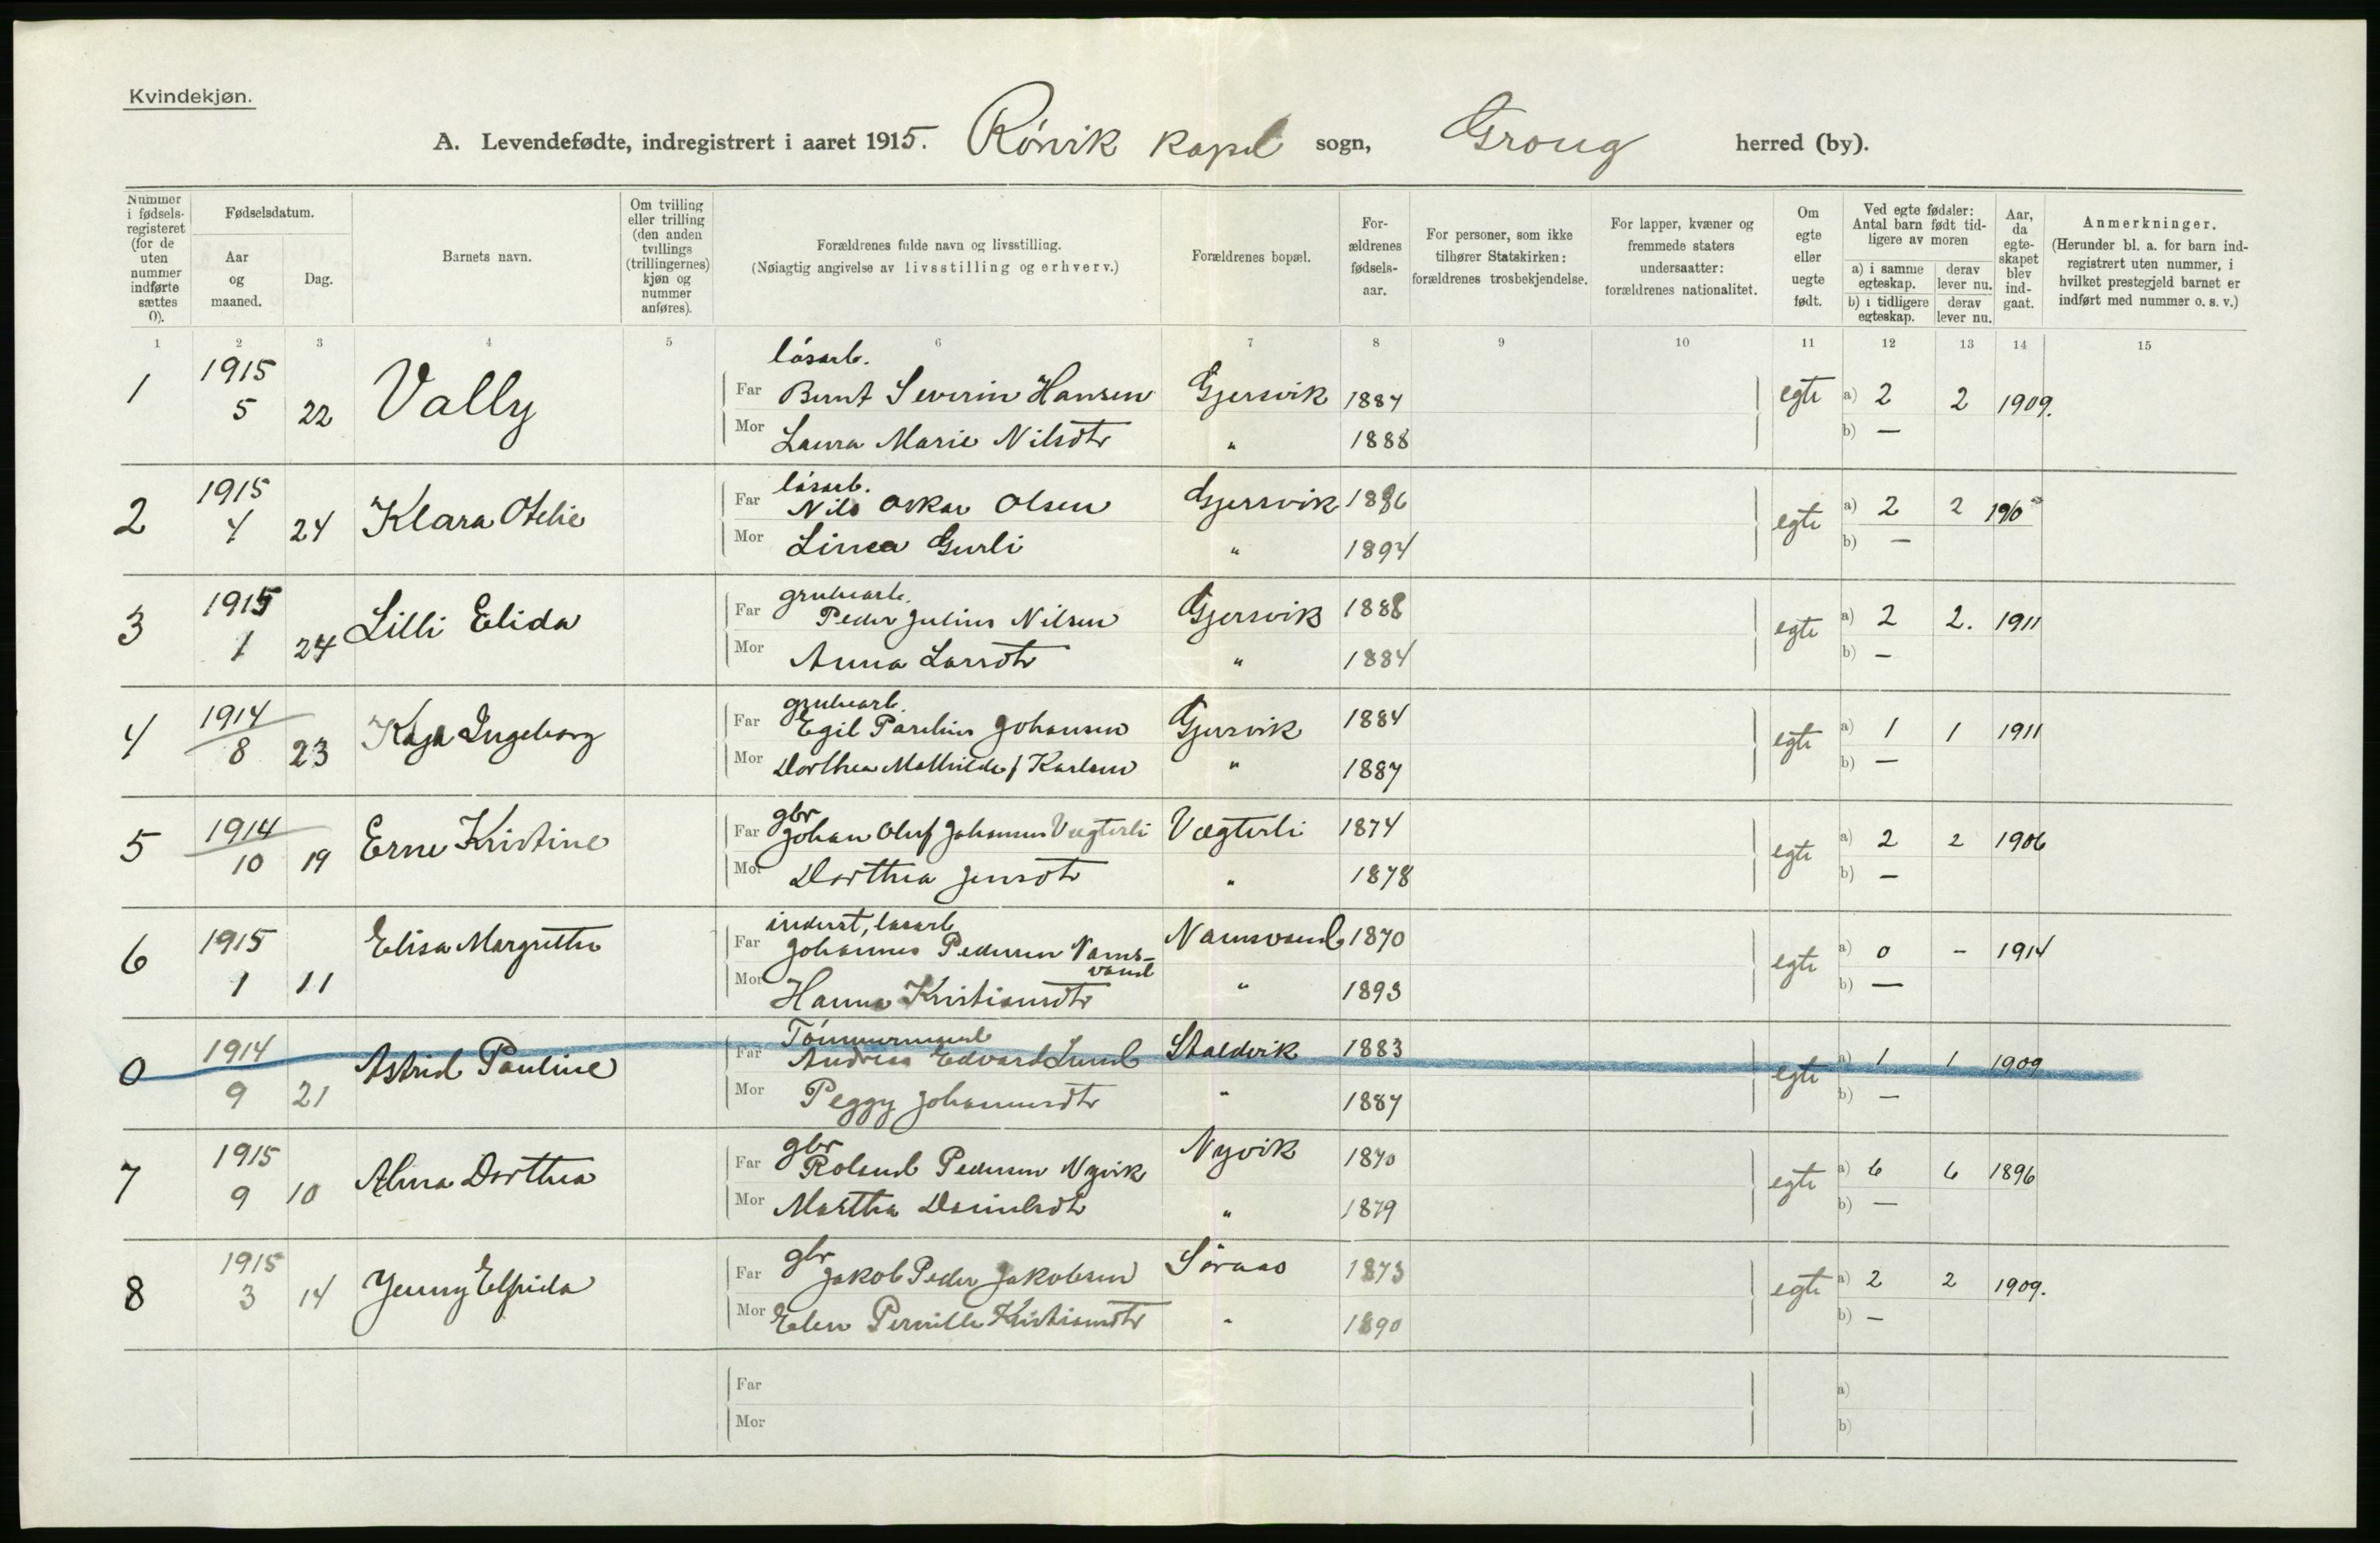 Kvindekjøn.
A. Levendefødte, indregistrert i aaret 1915. Rörvik kapel sogn, Grong herred (by).
Nummer i fødsels-registeret (for de uten nummer indførte sættes 0).
Fødselsdatum.
Aar og maaned.
Dag.
Barnets navn.
Om tvilling eller trilling (den anden tvillings (trillingernes) kjøn og nummer anføres).
Forældrenes fulde navn og livsstilling.
(Nøiagtig angivelse av livsstilling og erhverv.)
Forældrenes bopæl.
For-ældrenes fødsels-aar.
For personer, som ikke tilhører Statskirken: forældrenes trosbekjendelse.
For lapper, kvæner og fremmede staters undersaatter: forældrenes nationalitet.
Om egte eller uegte født.
Ved egte fødsler: Antal barn født tid-ligere av moren
a) i samme egteskap. derav lever nu.
b) i tidligere egteskap. derav lever nu.
Aar, da egte-skapet blev ind-gaat.
Anmerkninger.
(Herunder bl. a. for barn ind-registrert uten nummer, i hvilket prestegjeld barnet er indført med nummer o. s. v.)
1 2 3 4 5 6 7 8 9 10 11 12 13 14 15
lösarb.
1 1915 5 22 Vally Far Bernt Severin Hansen Gjersvik 1887 egte a) 2 2 1909.
Mor Laura Marie Nilsdtr " 1888 b) —
lösarb.
2 1915 4 24 Klara Otelie Far Nils Oskar Olsen Gjersvik 1886 egte a) 2 2
Mor Linea Gurli " 1894 b) —
grubearb.
3 1915 1 24 Lilli Elida Far Peder Julius Nilsen Gjersvik 1888 egte a) 2 2. 1911
Mor Anna Larsdtr " 1884 b) —
grubearb.
4 1914 8 23 Kaja Ingeborg Far Egil Parelius Johansen Gjersvik 1884 egte a) 1 1 1911
Mor Dorthea Mathilde f Karlsen " 1887 b) —
gbr
5 1914 10 19 Erne Kristine Far Johan Oluf Johannes Vegterli Vægterli 1874 egte a) 2 2 1906
Mor Dorthea Jensdtr " 1878 b) —
inderst, lösarb
6 1915 1 11 Elisa Margrethe Far Johannes Pedersen Nams-vand Namsvand 1870 egte a) 0 - 1914
Mor Hanna Kristiansdtr " 1893 b) —
Tömmermand
0 1914 9 21 Astrid Pauline Far Andreas Edvard Lund Staldvik 1883 egte a) 1 1 1909
Mor Peggy Johannesdtr " 1887 b) —
gbr
7 1915 9 10 Alma Dorthea Far Roland Pedersen Nyvik Nyvik 1870 egte a) 6 6 1896
Mor Martha Danielsdtr " 1879 b) —
gbr
8 1915 3 14 Jenny Elfrida Far Jakob Peder Jakobsen Söraas 1873 egte a) 2 2 1909.
Mor Elen Pernille Kristiansdtr " 1890 b) —
Far a)
Mor b)